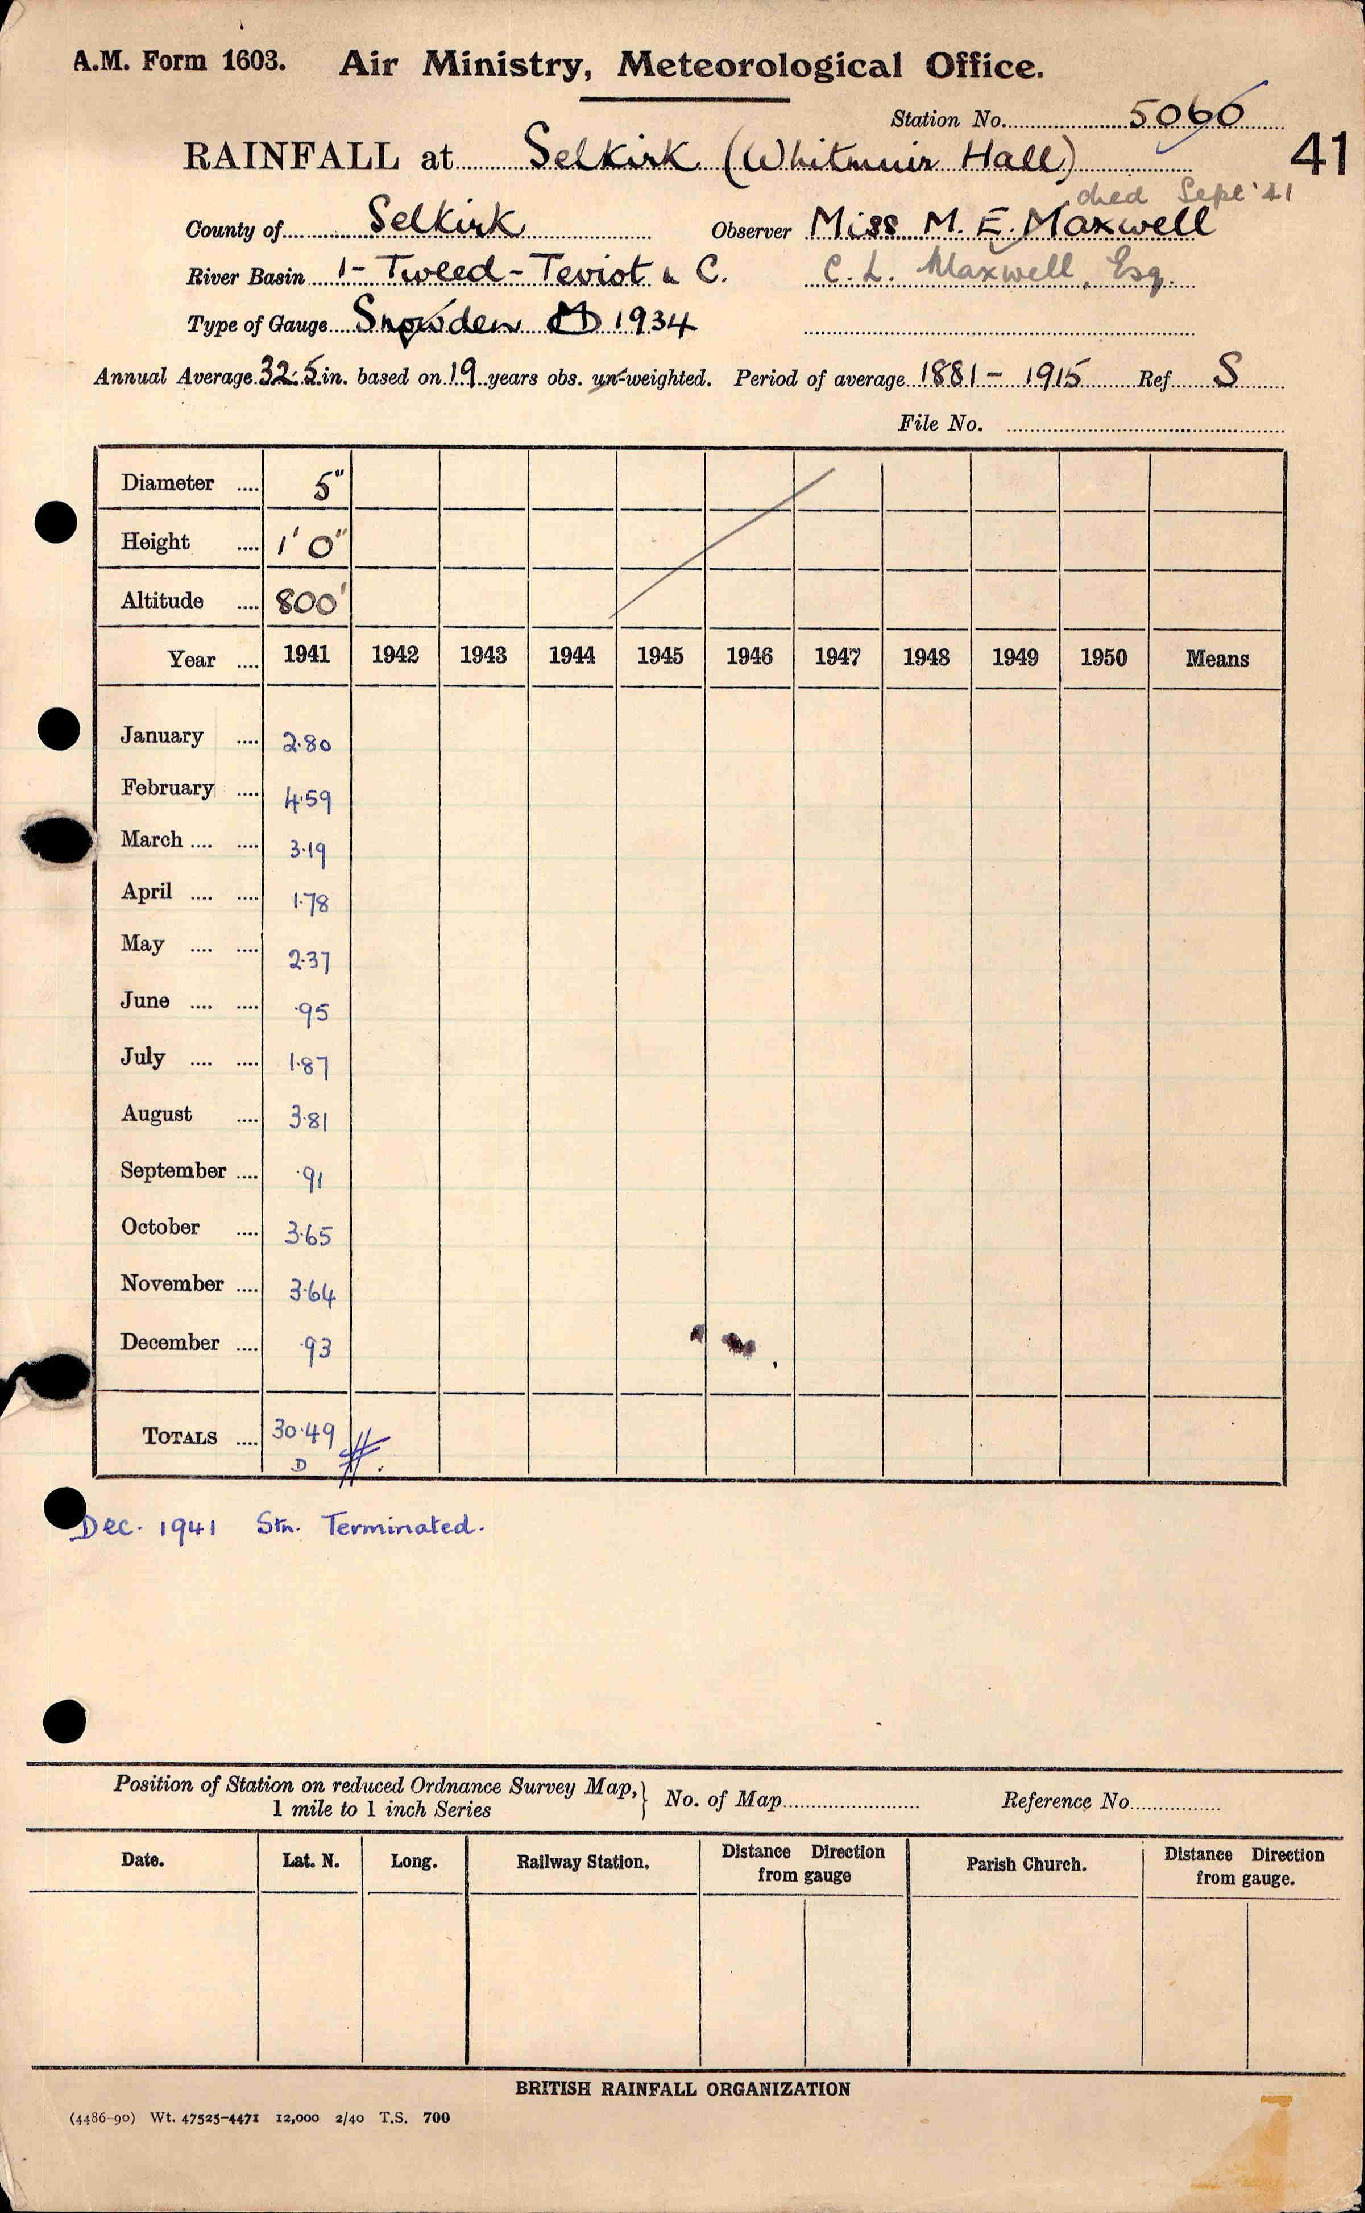 A.M. Form 1603. Air Ministry, Meteorological Office.
Station No. 5060
RAINFALL at Selkirk (Whitmuir Hall) 41
died Sept '41
County of Selkirk Observer Miss M. E. Maxwell
River Basin 1 - Tweed - Teviot & C. C. L. Maxwell, Esq.
Type of Gauge Snowden M 1934
Annual Average 32.5 in. based on 19 years obs. un-weighted. Period of average 1881 - 1915 Ref S
File No.
Diameter .... 5"
Height .... 1' 0"
Altitude .... 800'
Year .... 1941 1942 1943 1944 1945 1946 1947 1948 1949 1950 Means
January .... 2.80
February .... 4.59
March .... .... 3.19
April .... .... 1.78
May .... .... 2.37
June .... .... .95
July .... .... 1.87
August .... 3.81
September .... .91
October .... 3.65
November .... 3.64
December .... .93
TOTALS .... 30.49
D
Dec. 1941 Stn. Terminated.
Position of Station on reduced Ordnance Survey Map, 1 mile to 1 inch Series } No. of Map Reference No.
Date. Lat. N. Long. Railway Station. Distance Direction from gauge Parish Church. Distance Direction from gauge.
BRITISH RAINFALL ORGANIZATION
(4486-90) Wt. 47525-4471 12,000 2/40 T.S. 700